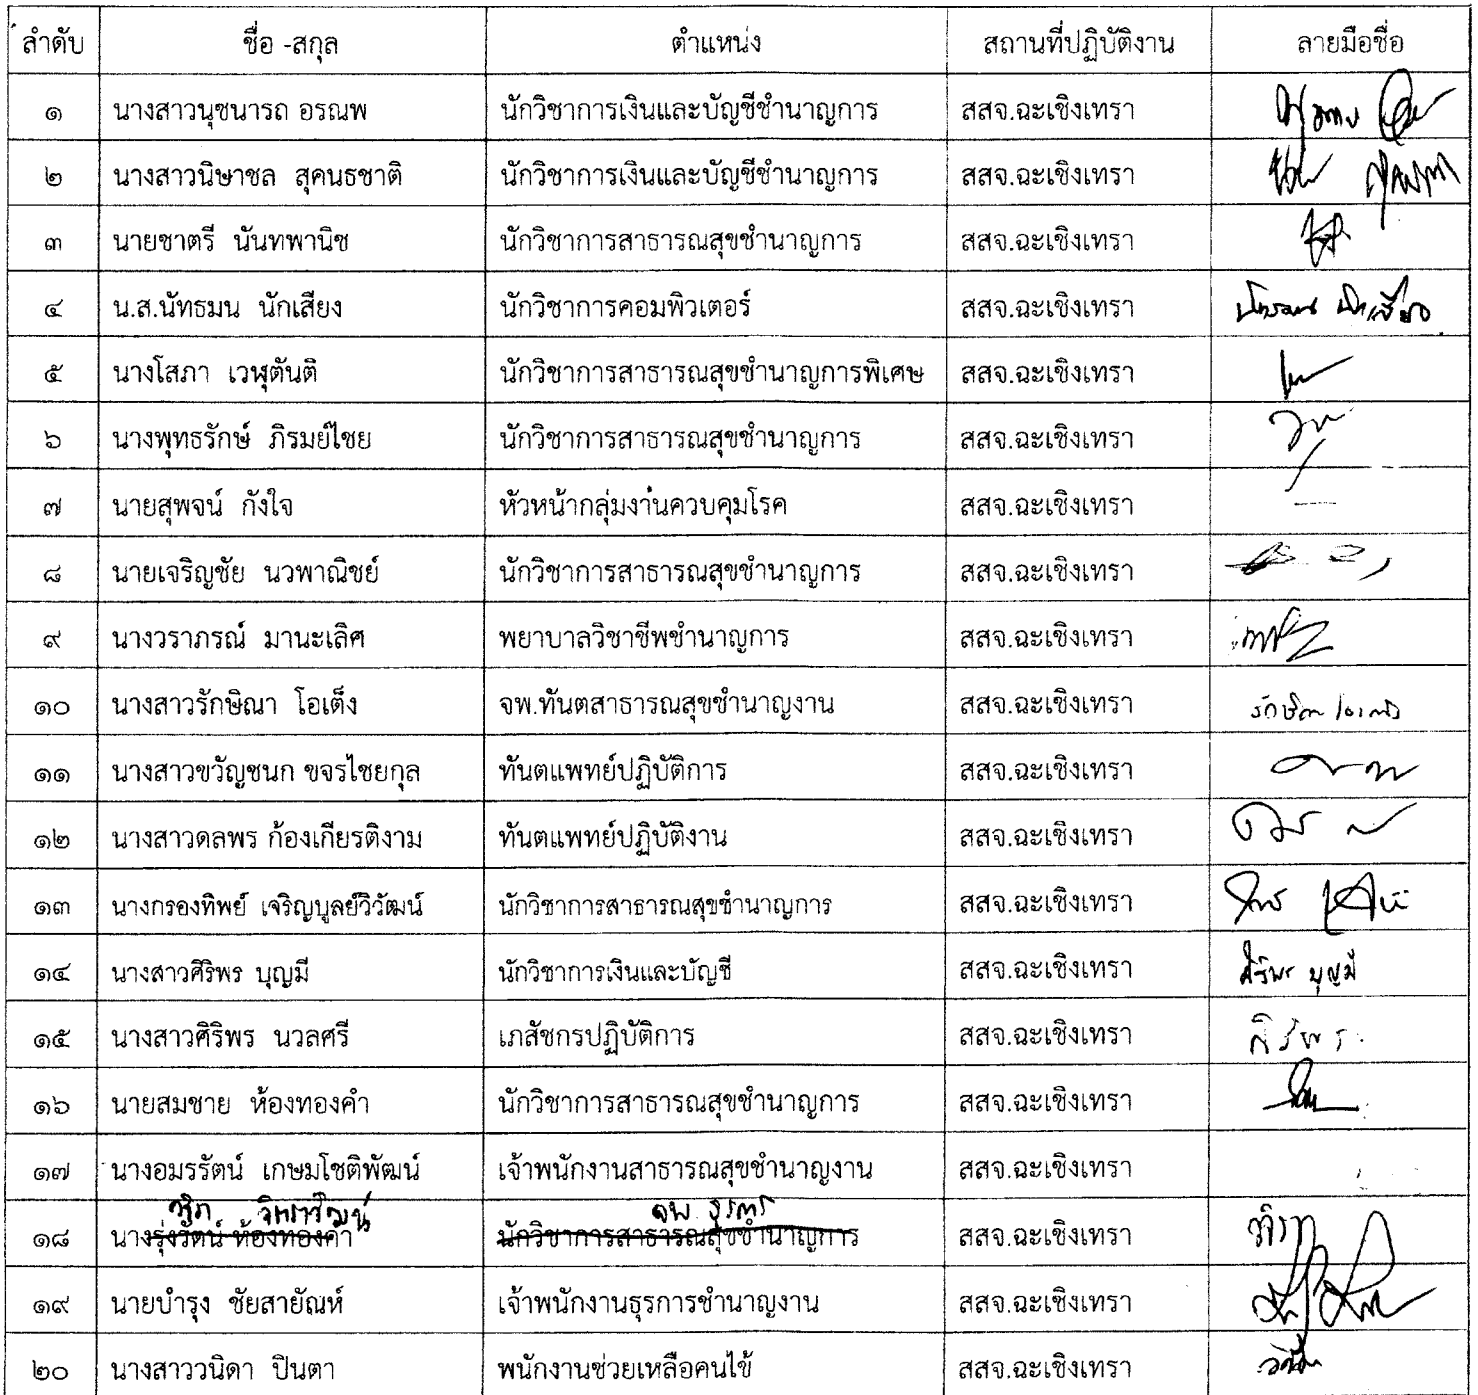 ลำดับ ชื่อ -สกุล ตำแหน่ง สถานที่ปฏิบัติงาน ลายมือชื่อ
๑ นางสาวนุชนารถ อรณพ นักวิชาการเงินและบัญชีชำนาญการ สสจ.ฉะเชิงเทรา
๒ นางสาวนิษาชล สุคนธชาติ นักวิชาการเงินและบัญชีชำนาญการ สสจ.ฉะเชิงเทรา
๓ นายชาตรี นันทพานิช นักวิชาการสาธารณสุขชำนาญการ สสจ.ฉะเชิงเทรา
๔ น.ส.นัทธมน นักเสียง นักวิชาการคอมพิวเตอร์ สสจ.ฉะเชิงเทรา
๕ นางโสภา เวฬุตันติ นักวิชาการสาธารณสุขชำนาญการพิเศษ สสจ.ฉะเชิงเทรา
๖ นางพุทธรักษ์ ภิรมย์ไชย นักวิชาการสาธารณสุขชำนาญการ สสจ.ฉะเชิงเทรา
๗ นายสุพจน์ กังใจ หัวหน้ากลุ่มงานควบคุมโรค สสจ.ฉะเชิงเทรา
๘ นายเจริญชัย นวพาณิชย์ นักวิชาการสาธารณสุขชำนาญการ สสจ.ฉะเชิงเทรา
๙ นางวราภรณ์ มานะเลิศ พยาบาลวิชาชีพชำนาญการ สสจ.ฉะเชิงเทรา
๑๐ นางสาวรักษิณา โอเต็ง จพ.ทันตสาธารณสุขชำนาญงาน สสจ.ฉะเชิงเทรา
๑๑ นางสาวขวัญชนก ขจรไชยกุล ทันตแพทย์ปฏิบัติการ สสจ.ฉะเชิงเทรา
๑๒ นางสาวดลพร ก้องเกียรติงาม ทันตแพทย์ปฏิบัติงาน สสจ.ฉะเชิงเทรา
๑๓ นางกรองทิพย์ เจริญบูลย์วิวัฒน์ นักวิชาการสาธารณสุขชำนาญการ สสจ.ฉะเชิงเทรา
๑๔ นางสาวศิริพร บุญมี นักวิชาการเงินและบัญชี สสจ.ฉะเชิงเทรา ศิริพร บุญมี
๑๕ นางสาวศิริพร นวลศรี เภสัชกรปฏิบัติการ สสจ.ฉะเชิงเทรา ศิริพร
๑๖ นายสมชาย ห้องทองคำ นักวิชาการสาธารณสุขชำนาญการ สสจ.ฉะเชิงเทรา
๑๗ นางอมรรัตน์ เกษมโชติพัฒน์ เจ้าพนักงานสาธารณสุขชำนาญงาน สสจ.ฉะเชิงเทรา
จพ. ธุรการ
๑๘ นางรุ่งรัตน์ ห้องทองคำ นักวิชาการสาธารณสุขชำนาญการ สสจ.ฉะเชิงเทรา
๑๙ นายบำรุง ชัยสายัณห์ เจ้าพนักงานธุรการชำนาญงาน สสจ.ฉะเชิงเทรา
๒๐ นางสาววนิดา ปินตา พนักงานช่วยเหลือคนไข้ สสจ.ฉะเชิงเทรา